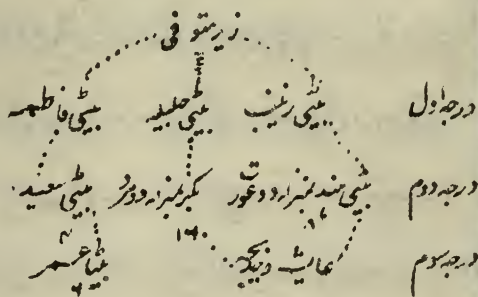 زید متوفی
درجه اول بیٹی زینب بیٹی جلیلہ بیٹی فاطمہ
درجه دوم بیٹی ہند بمنزلہ دو عورت بکر بمنزلہ دو مرد بیٹی سعید
۱۶۰
درجه سوم عائشہ بیٹا عمر